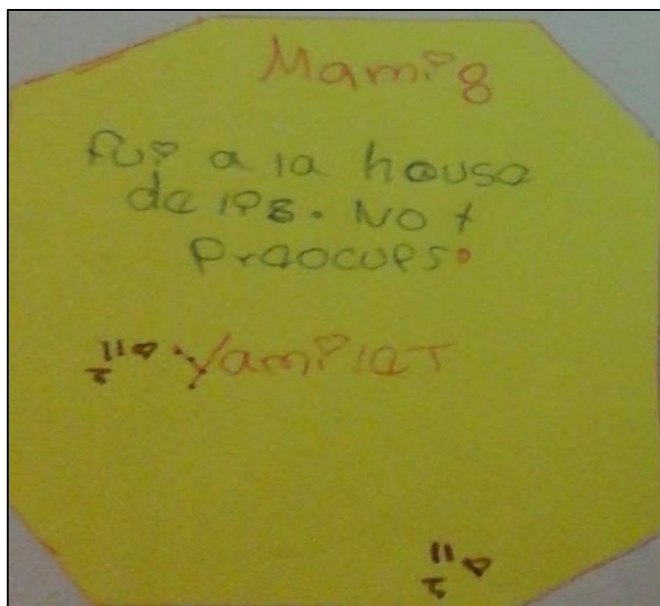 Mami8
fui a la house
de ips. No t
preocups.
Yamilet